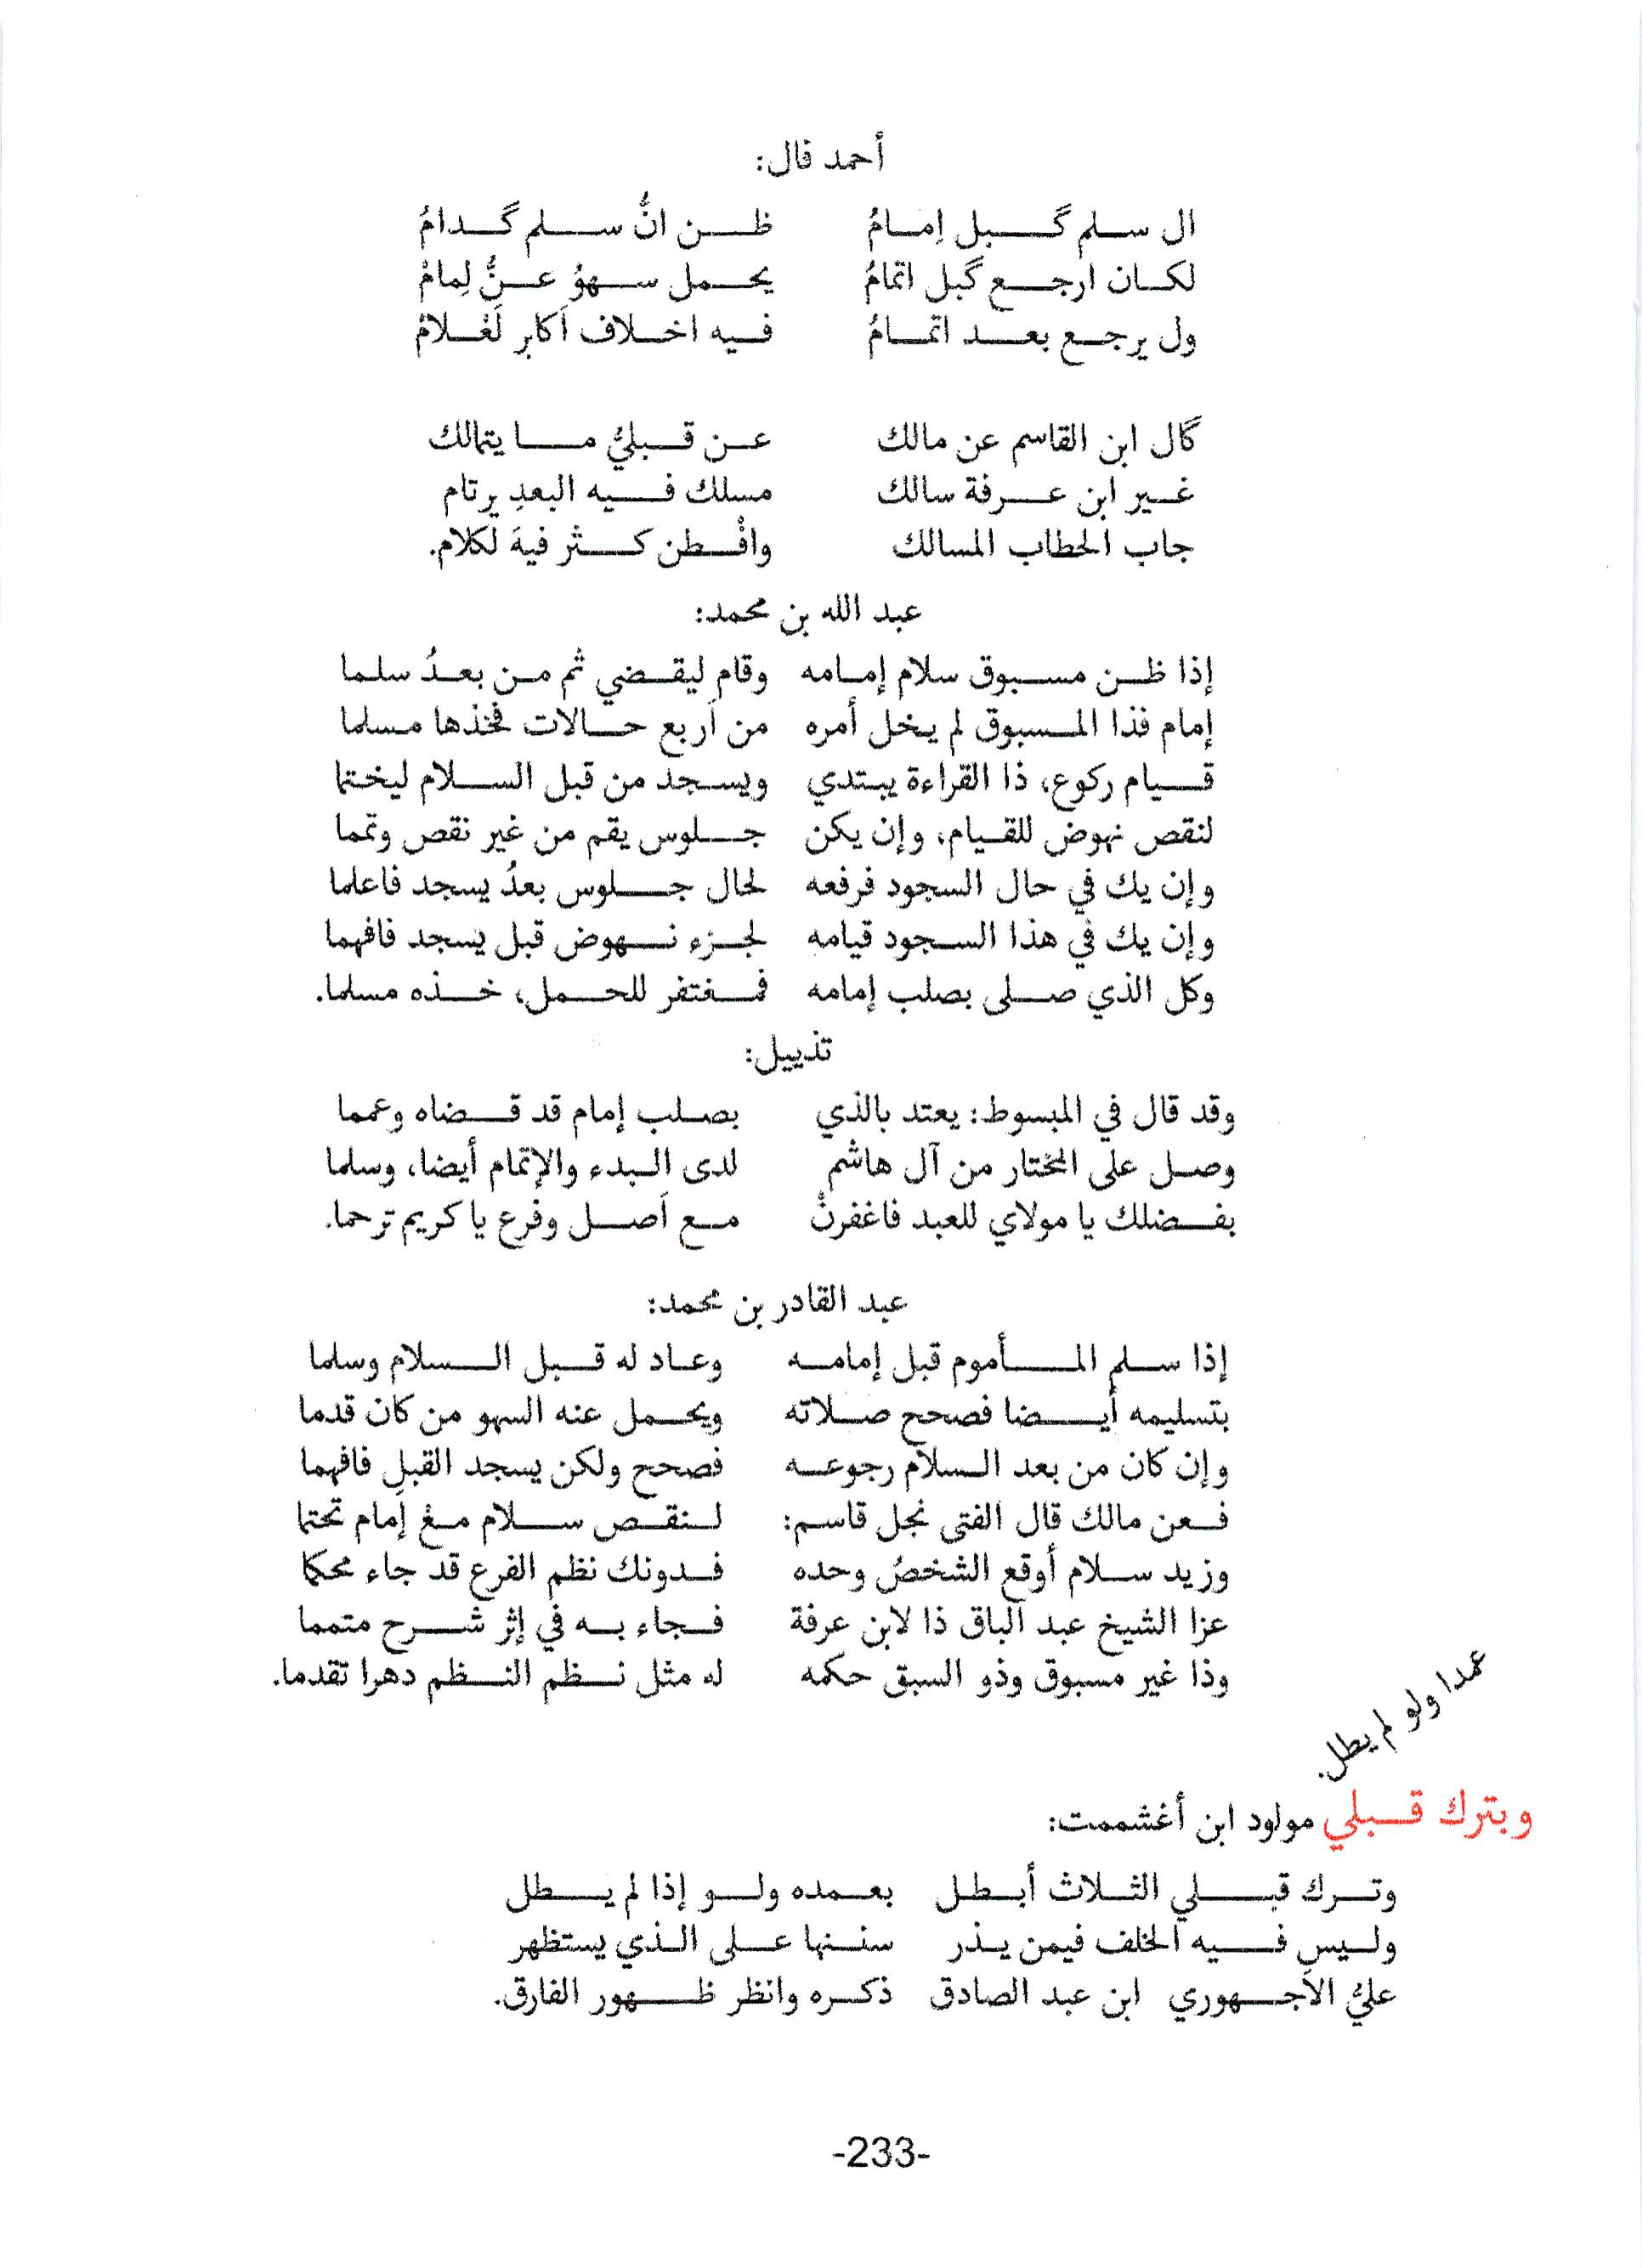 أحمد فال:
ال سلم گبل إمامُ ظن انُّ سلم گدامُ
لكان ارجع گبل اتمامُ يحمل سهوُ عنُّ لِمامْ
ول يرجع بعد اتمامُ فيه اخلاف اَكابر لَعْلامْ
گال ابن القاسم عن مالك عن قبليُّ ما يتمالك
غير ابن عرفة سالك مسلك فيه البعدِ يرتام
جاب الحطاب المسالك وافْطن كثر فيهَ لكلام.
عبد الله بن محمد:
إذا ظن مسبوق سلام إمامه وقام ليقضي ثم من بعدُ سلما
إمام فذا المسبوق لم يخل أمره من اَربع حالات فخذها مسلما
قيام ركوع، ذا القراءة يبتدي ويسجد من قبل السلام ليختما
لنقص نهوض للقيام، وإن يكن جلوس يقم من غير نقص وتمما
وإن يك في حال السجود فرفعه لحال جلوس بعدُ يسجد فاعلما
وإن يك في هذا السجود قيامه لجزء نهوض قبل يسجد فافهما
وكل الذي صلى بصلب إمامه فمغتفر للحمل، خذه مسلما.
تذييل:
وقد قال في المبسوط: يعتد بالذي بصلب إمام قد قضاه وعمما
وصل على المختار من آل هاشم لدى البدء والإتمام أيضا، وسلما
بفضلك يا مولاي للعبد فاغفرنْ مع اَصل وفرع يا كريم ترحما.
عبد القادر بن محمد:
إذا سلم المأموم قبل إمامه وعاد له قبل السلام وسلما
بتسليمه أيضا فصحح صلاته ويحمل عنه السهو من كان قدما
وإن كان من بعد السلام رجوعه فصحح ولكن يسجد القبلِ فافهما
فعن مالك قال الفتى نجل قاسم: لنقص سلام معْ إمام تحتما
وزيد سلام أوقع الشخصُ وحده فدونك نظم الفرع قد جاء محكما
عزا الشيخ عبد الباق ذا لابن عرفة فجاء به في إثر شرح متمما
وذا غير مسبوق وذو السبق حكمه له مثل نظم النظم دهرا تقدما.
عمدا ولو لم يطل.
وبترك قبلي مولود ابن أغشممت:
وترك قبلي الثلاث أبطل بعمده ولو إذا لم يطل
وليس فيه الخلف فيمن يذر سننها على الذي يستظهر
عليُّ الاَجهوري ابن عبد الصادق ذكره وانظر ظهور الفارق.
-233-